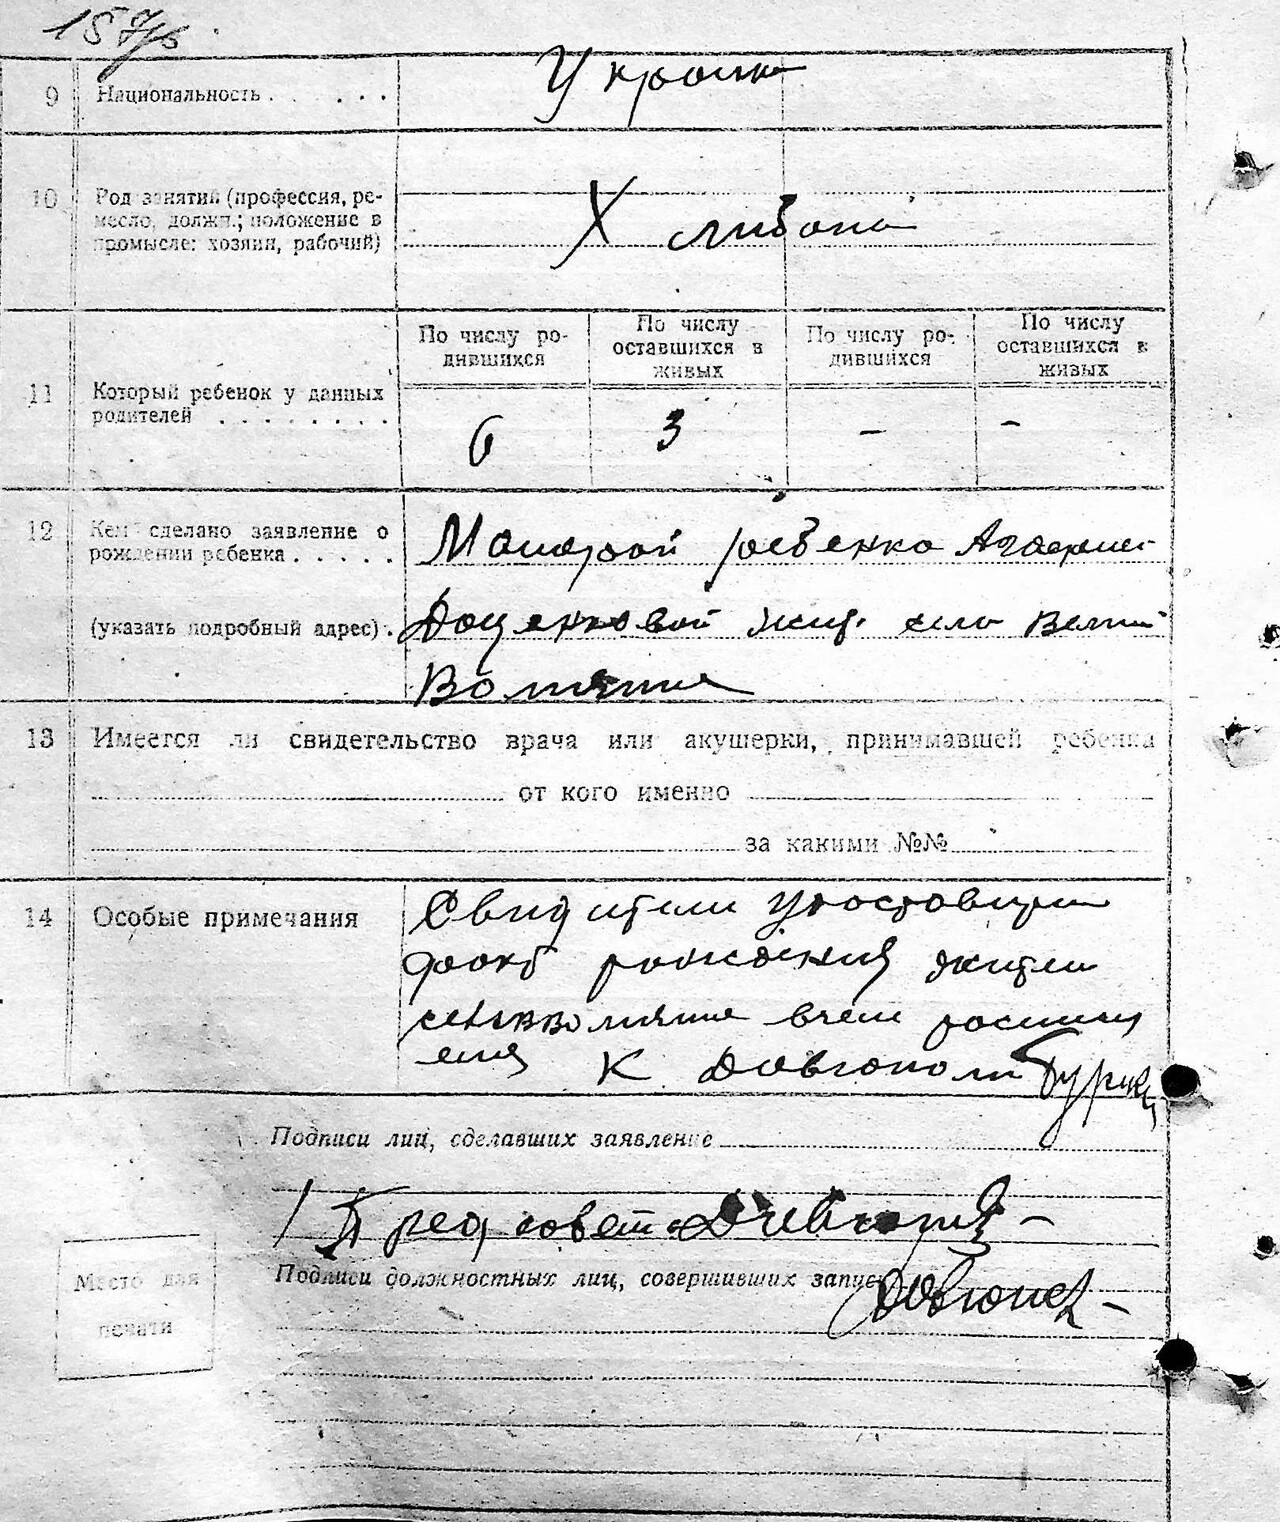 157
9 Национальность . . . . . .
Украин
10 Род занятий (профессия, ре-
месло, должн.; положение в
промысле: хозяин, рабочий)
Х либона
По числу ро-
дившихся
По числу
оставшихся в
живых
По числу ро-
дившихся
По числу
оставшихся в
живых
11 Который ребенок у данных
родителей . . . . . . . .
6 3 - -
12 Кем сделано заявление о
рождении ребенка . . . . .
(указать подробный адрес) .
Матерой ребенка
Доценковой жит. село
13 Имеется ли свидетельство врача или акушерки, принимавшей ребенка
от кого именно
за какими №№
14 Особые примечания
Свидители
факт рождения жители
К Довгопол
Подписи лиц, сделавших заявление
Пред совета
Подписи должностных лиц, совершивших запись
Место для
печати